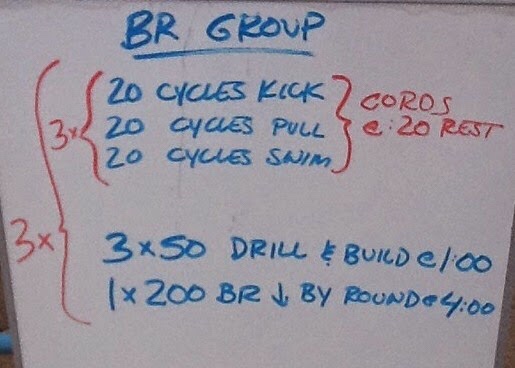 BR GROUP
3x
3x
20 CYCLES KICK
20 CYCLES PULL
20 CYCLES SWIM
CORDS
@ :20 REST
3 x 50 DRILL & BUILD @ 1:00
1 x 200 BR ↓ BY ROUND @ 4:00